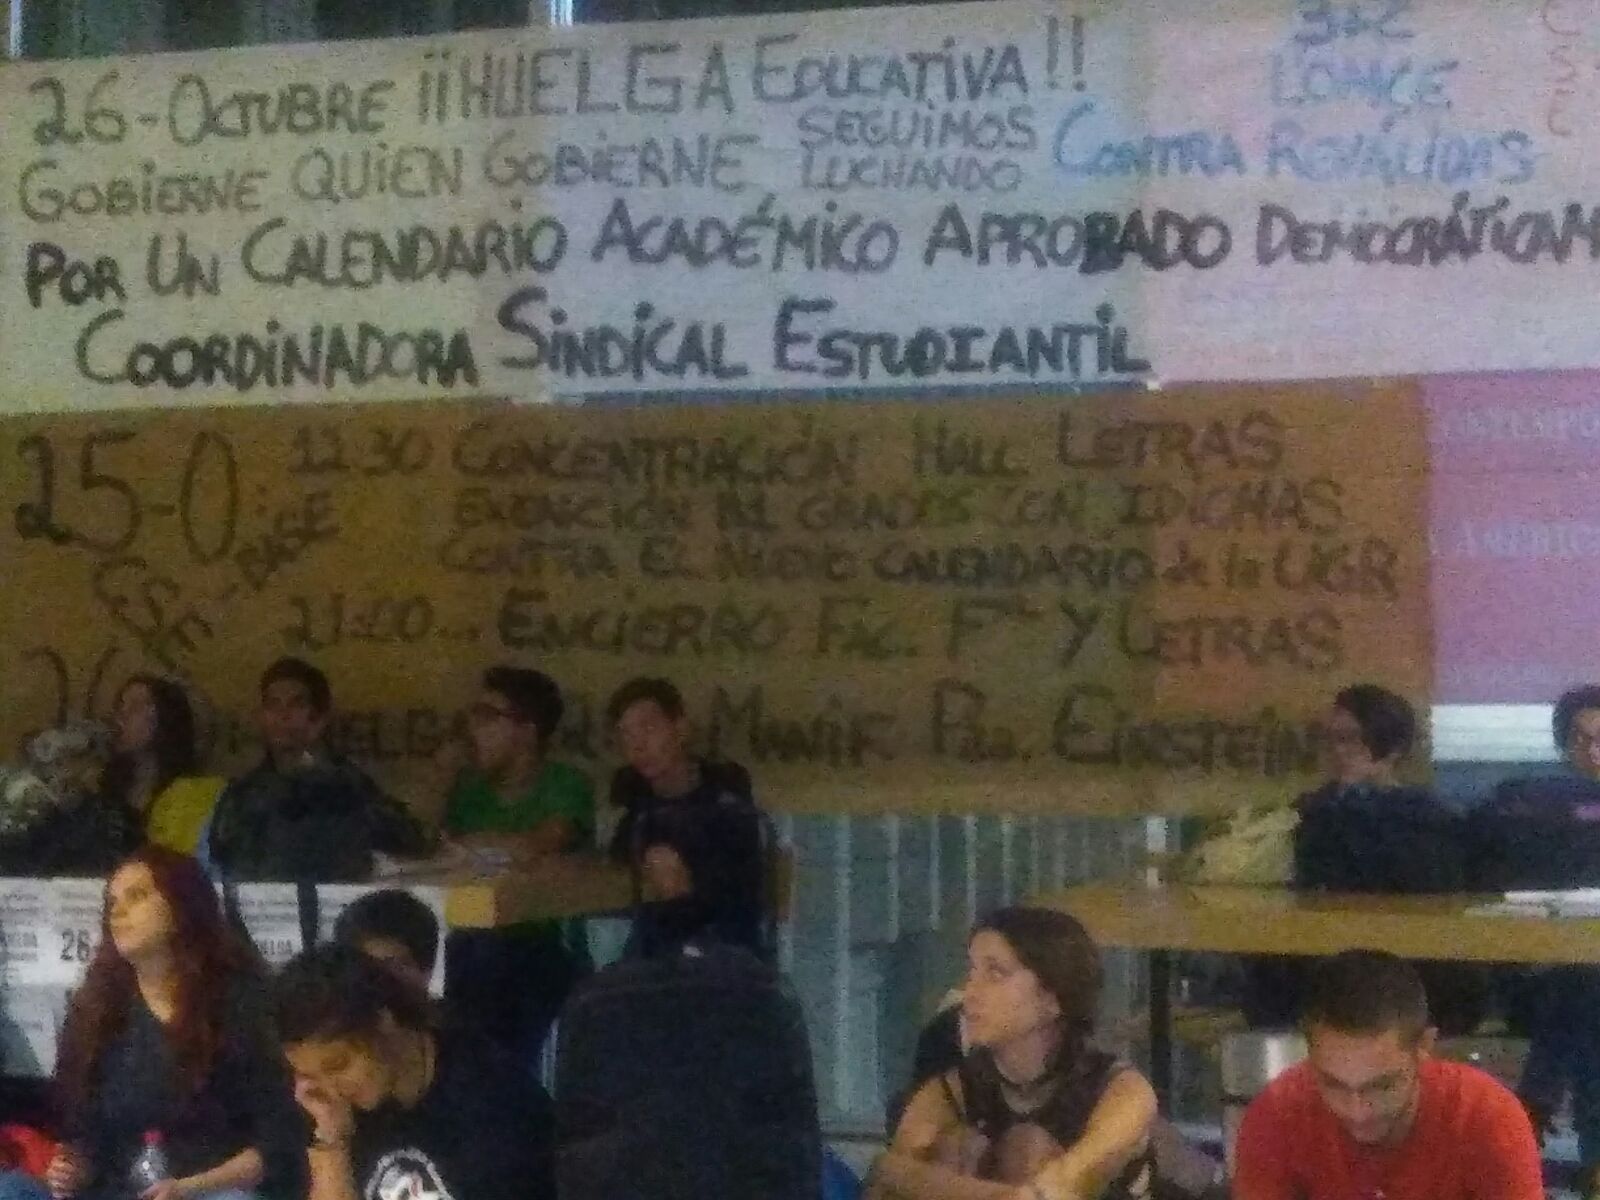 26-OCTUBRE ¡¡HUELGA EDUCATIVA!!
GOBIERNE QUIEN GOBIERNE SEGUIMOS LUCHANDO CONTRA REVÁLIDAS
3+2
LOMCE
POR UN CALENDARIO ACADÉMICO APROBADO DEMOCRÁTICAM
COORDINADORA SINDICAL ESTUDIANTIL
25-O: 12:30 CONCENTRACIÓN HALL LETRAS
EXTINCIÓN GRADOS CON IDIOMAS
CONTRA EL NUEVO CALENDARIO de la UGR
21:00... ENCIERRO FAC. Fª Y LETRAS
26 HUELGA MANIF PZA. EINSTEIN
26